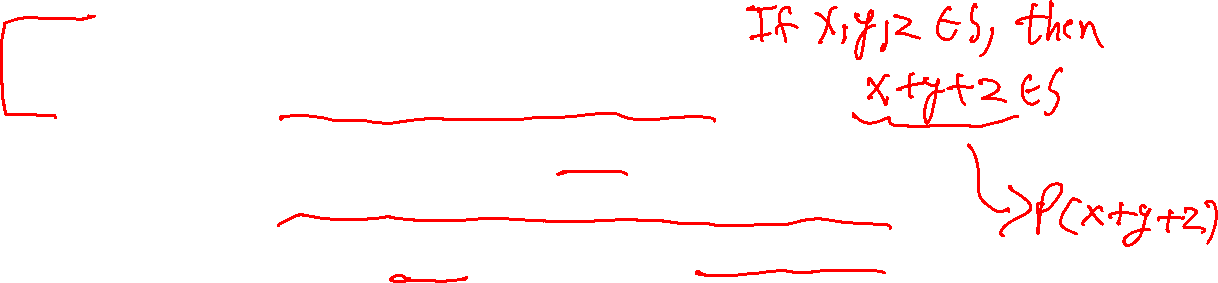 If x,y,z ∈ S, then
x+y+z ∈ S
P(x+y+z)